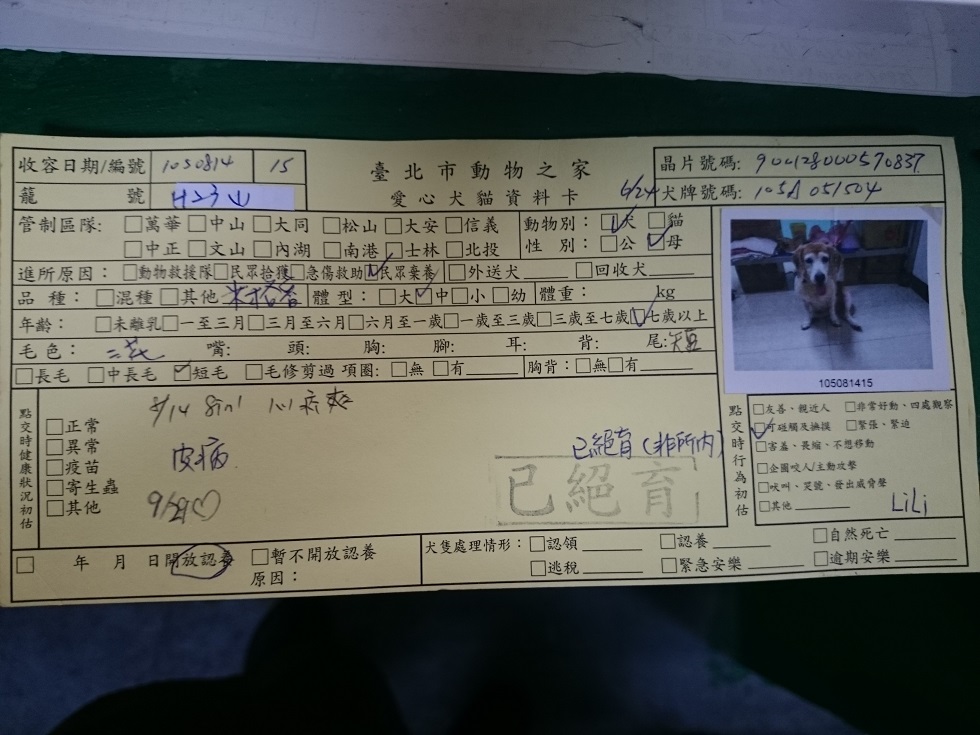 收容日期/編號 1050814 15
臺北市動物之家
晶片號碼: 900128000570837
籠 號
愛心犬貓資料卡
6/24
犬牌號碼: 105A051504
管制區隊: □萬華 □中山 □大同 □松山 □大安 □信義
□中正 □文山 □內湖 □南港 □士林 □北投
動物別: ☑犬 □貓
性 別: □公 ☑母
進所原因: □動物救援隊 □民眾拾獲 □急傷救助 ☑民眾棄養 □外送犬 □回收犬
品 種: □混種 □其他 米格魯 體 型: □大 ☑中 □小 □幼 體重: kg
年齡: □未離乳 □一至三月 □三月至六月 □六月至一歲 □一歲至三歲 □三歲至七歲 ☑七歲以上
毛色: 三花 嘴: 頭: 胸: 腳: 耳: 背: 尾: 短
□長毛 □中長毛 ☑短毛 □毛修剪過 項圈: □無 □有 胸背: □無 □有
105081415
點交時健康狀況初估
□正常
□異常
□疫苗
□寄生蟲
□其他
8/14
皮病
已絕育(非所內)
已絕育
點交時行為初估
□友善、親近人 □非常好動、四處觀察
☑可碰觸及撫摸 □緊張、緊迫
□害羞、畏縮、不想移動
□企圖咬人/主動攻擊
□吠叫、哭號、發出威脅聲
□其他
LiLi
□ 年 月 日開放認養 □暫不開放認養
原因:
犬隻處理情形: □認領 □認養 □自然死亡
□逃稅 □緊急安樂 □逾期安樂